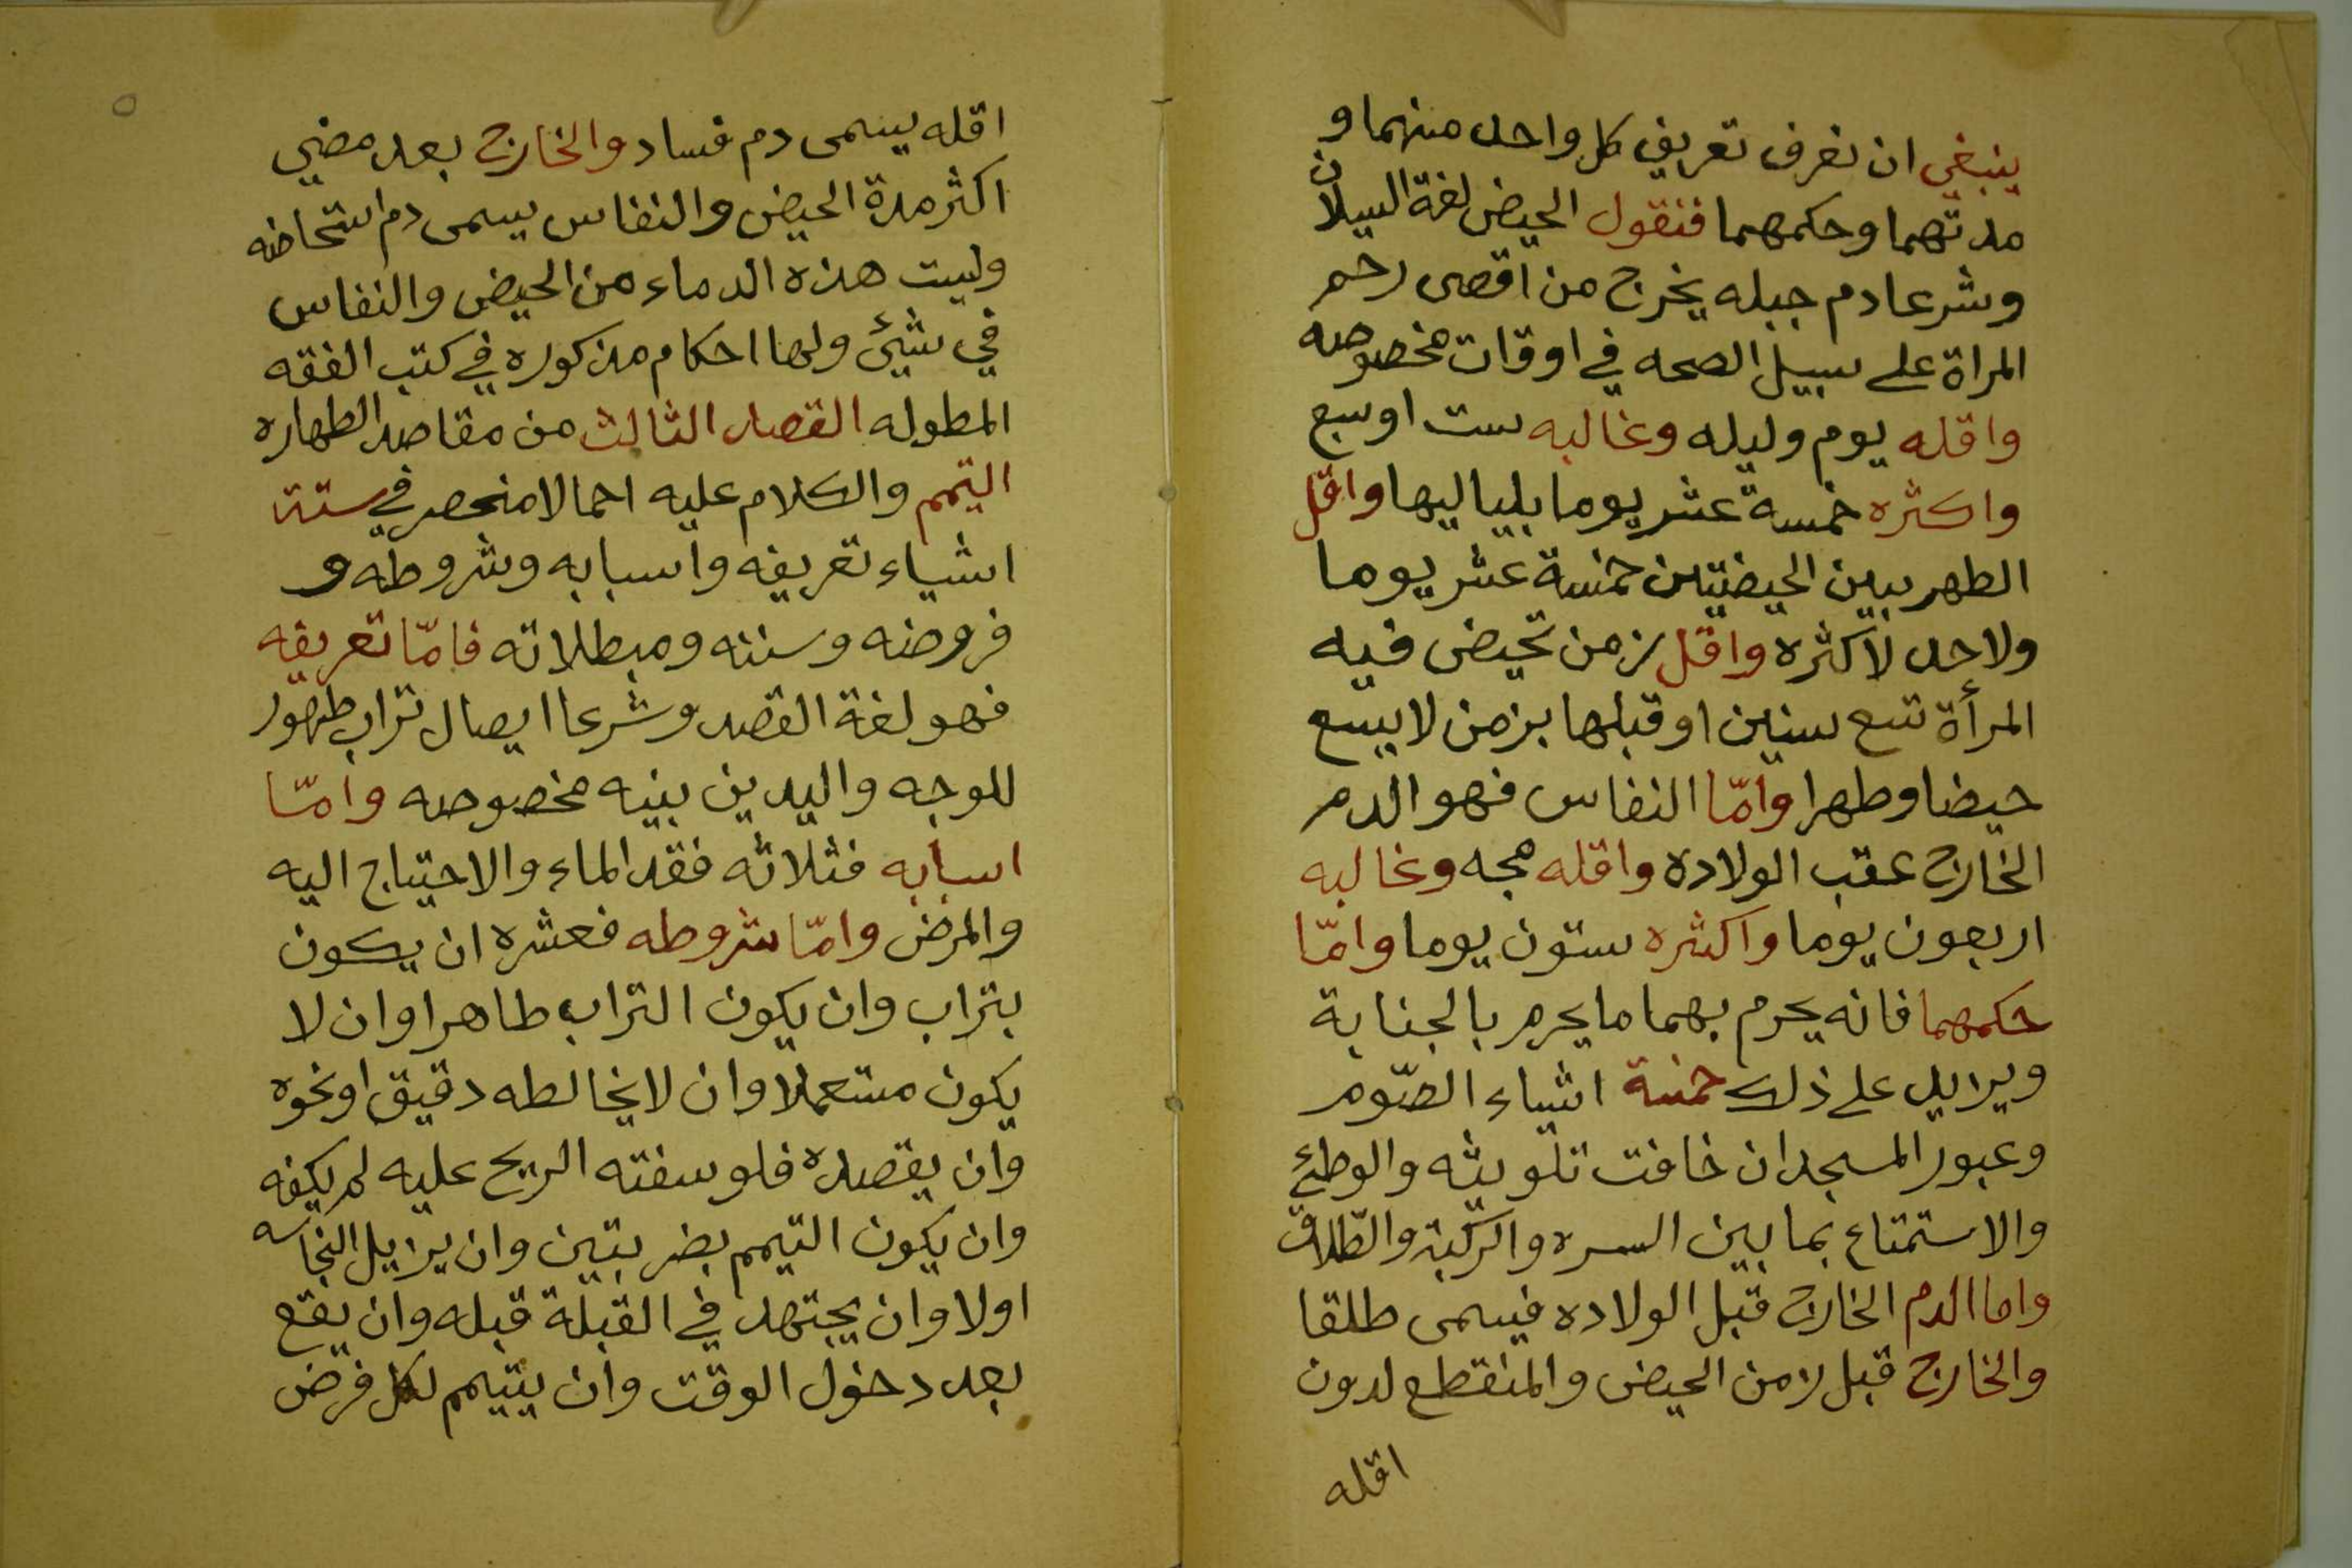 ينبغي ان نعرف تعريف كل واحد منهما و
مدتهما وحكمهما فنقول الحيض لغة السيلان
وشرعا دم جبله يخرج من اقصى رحم
المراة على سبيل الصحه في اوقات مخصوصه
واقله يوم وليله وغالبه ست او سبع
واكثره خمسة عشر يوما بلياليها واقل
الطهر بين الحيضتين خمسة عشر يوما
ولاحد لاكثره واقل زمن تحيض فيه
المرأة تسع سنين او قبلها بزمن لا يسع
حيضا وطهرا وامّا النفاس فهو الدم
الخارج عقب الولاده واقله مجه وغالبه
اربعون يوما واكثره ستون يوما وامّا
حكمهما فانه يحرم بهما ما يحرم بالجنابة
ويزايد على ذلك خمسة اشياء الصّوم
وعبور المسجد ان خافت تلويثه والوطئ
والاستمتاع بما بين السره والرّكبة والطّلاق
واما الدم الخارج قبل الولاده فيسمى طلقا
والخارج قبل زمن الحيض والمنقطع لدون
اقله
٥
اقله يسمى دم فساد والخارج بعد مضي
اكثر مدة الحيض والنفاس يسمى دم استحاضه
وليست هذه الدماء من الحيض والنفاس
في شيئ ولها احكام مذكوره في كتب الفقه
المطوله القصد الثالث من مقاصد الطهاره
التيمم والكلام عليه اجمالا منحصر في ستة
اشياء تعريفه واسبابه وشروطه و
فروضه وسننه ومبطلاته فامّا تعريفه
فهو لغة القصد وشرعا ايصال تراب طهور
للوجه واليدين بنيه مخصوصه وامّا
اسبابه فثلاثه فقد الماء والاحتياج اليه
والمرض وامّا شروطه فعشره ان يكون
بتراب وان يكون التراب طاهرا وان لا
يكون مستعملا وان لا يخالطه دقيق او نحوه
وان يقصده فلو سفته الريح عليه لم يكفه
وان يكون التيمم بضربتين وان يزيل النجاسه
اولا وان يجتهد في القبلة قبله وان يقع
بعد دخول الوقت وان يتيمم لكل فرض